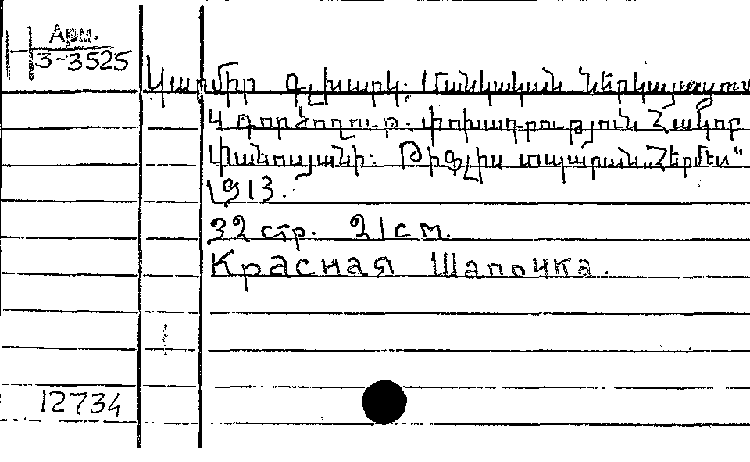 Арм.
3-3525
Կարմիր գլխարկ. Մանկական ներկայացում
4 գործողութ. փոխադրութիւն Հակոբ
Փանոսյանի: Թիֆլիս տպարան „Հերմես"
1913.
32 стр. 21 см.
Красная Шапочка.
12734